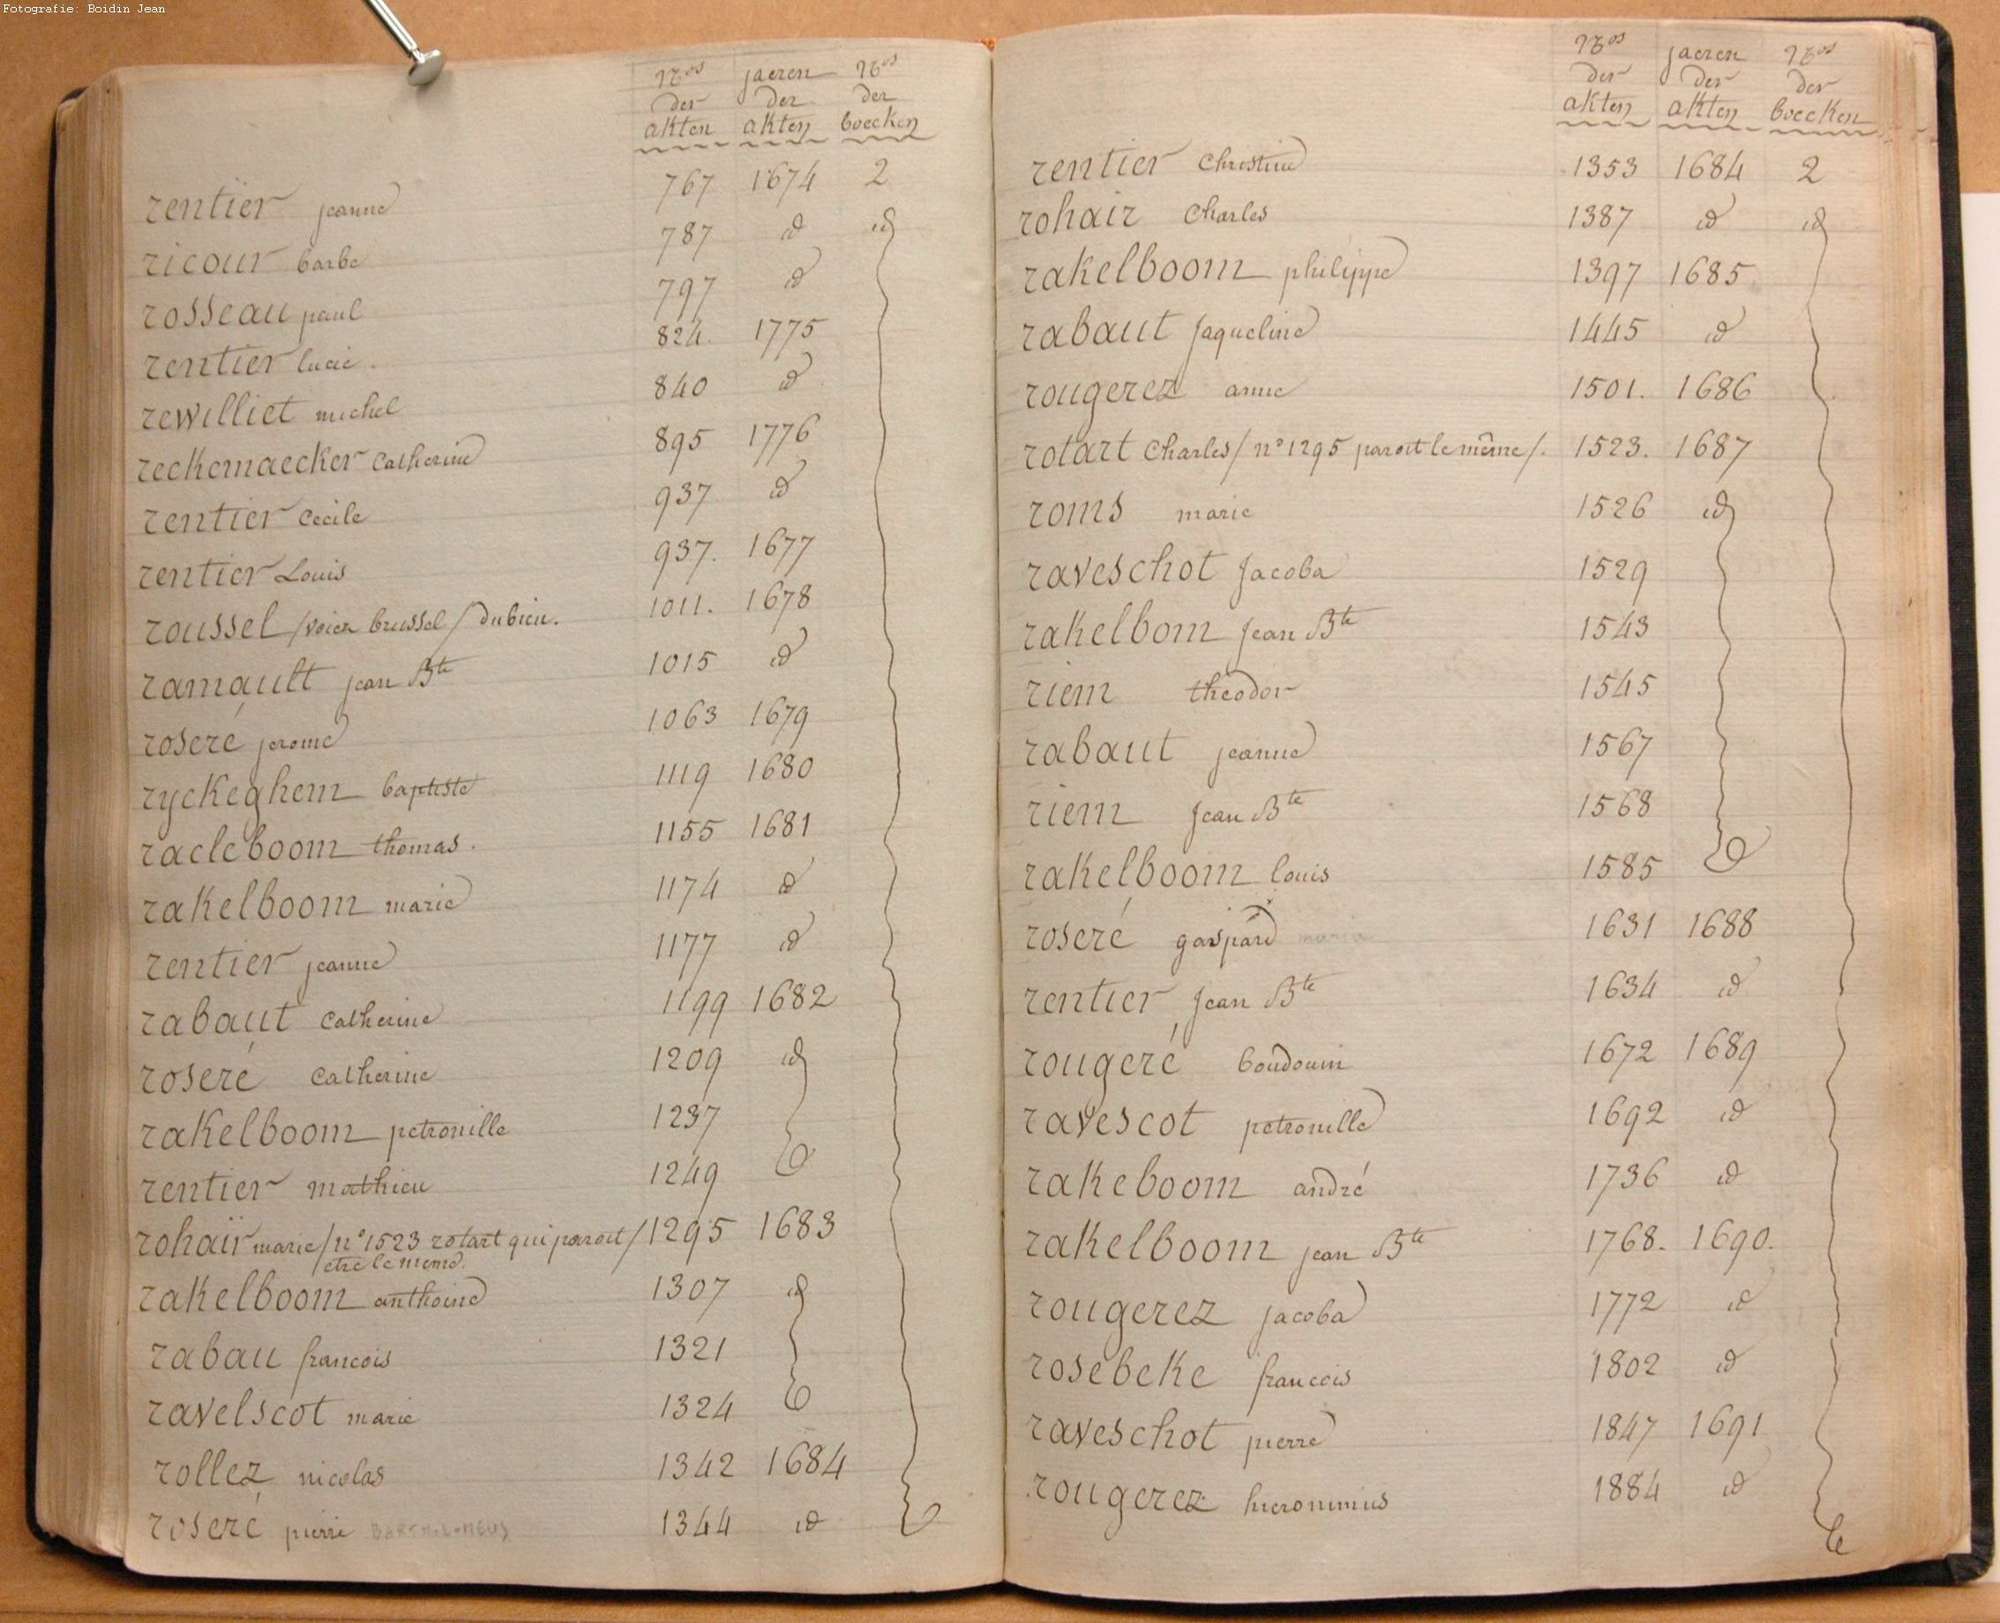 Fotografie: Boidin Jean
Nos jaeren Nos
der der der
akten akten boecken
rentier jeanne 767 1674 2
ricour barbe 787 id id
rosseau paul 797 id
rentier lucie 824. 1775
rewilliet michel 840 id
reckemaecker Catherine 895 1776
rentier Cecile 937 id
rentier Louis 937. 1677
roussel /voiez brussel/ dubieu. 1011. 1678
ramault jean Bte 1015 id
roseré jerome 1063 1679
ryckeghem baptiste 1119 1680
racleboom thomas. 1155 1681
rakelboom marie 1174 id
rentier jeanne 1177 id
rabaut Catherine 1199 1682
roseré Catherine 1209 id
rakelboom petronille 1237
rentier mathieu 1249
rohaïr marie /n° 1523 rotart qui paroit/ 1295 1683
etre le meme.
rakelboom anthoine 1307 id
rabau francois 1321
ravelscot marie 1324
rollez nicolas 1342 1684
roseré pierre BARTHOLOMEUS 1344 id
Nos jaeren Nos
der der der
akten akten boecken
rentier Christine 1353 1684 2
rohair Charles 1387 id id
rakelboom philippe 1397 1685
rabaut Jaqueline 1445 id
rougerez anne 1501. 1686
rotart Charles /n° 1295 paroit le même/. 1523. 1687
roms marie 1526 id
raveschot Jacoba 1529
rakelbom Jean Bte 1543
riem theodor 1545
rabaut jeanne 1567
riem Jean Bte 1568
rakelboom louis 1585
roseré gaspard maria 1631 1688
rentier Jean Bte 1634 id
rougeré boudouin 1672 1689
ravescot petronille 1692 id
rakeboom andré 1736 id
rakelboom jean Bte 1768. 1690.
rougerez jacoba 1772 id
rosebeke francois 1802 id
raveschot pierre 1847 1691
rougerez hieronimus 1884 id